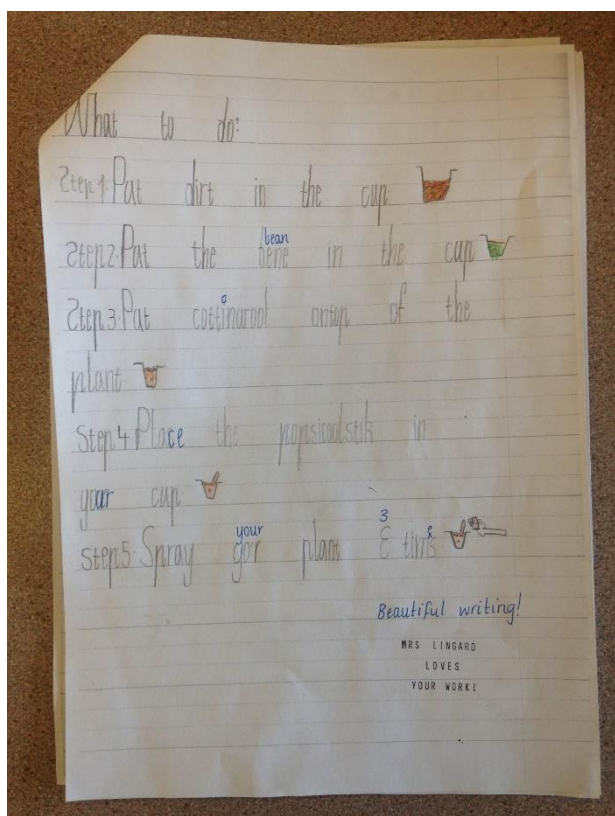 What to do:
Step 1. Pat dirt in the cup
bean
Step 2. Pat the bene in the cup
o
Step 3. Pat cottinwool ontop of the
plant
Step 4. Place the popsicoolstik in
your cup
your 3 e
Step 5. Spray yo'r plant Ɛ tims
Beautiful writing!
MRS LINGARD
LOVES
YOUR WORK!